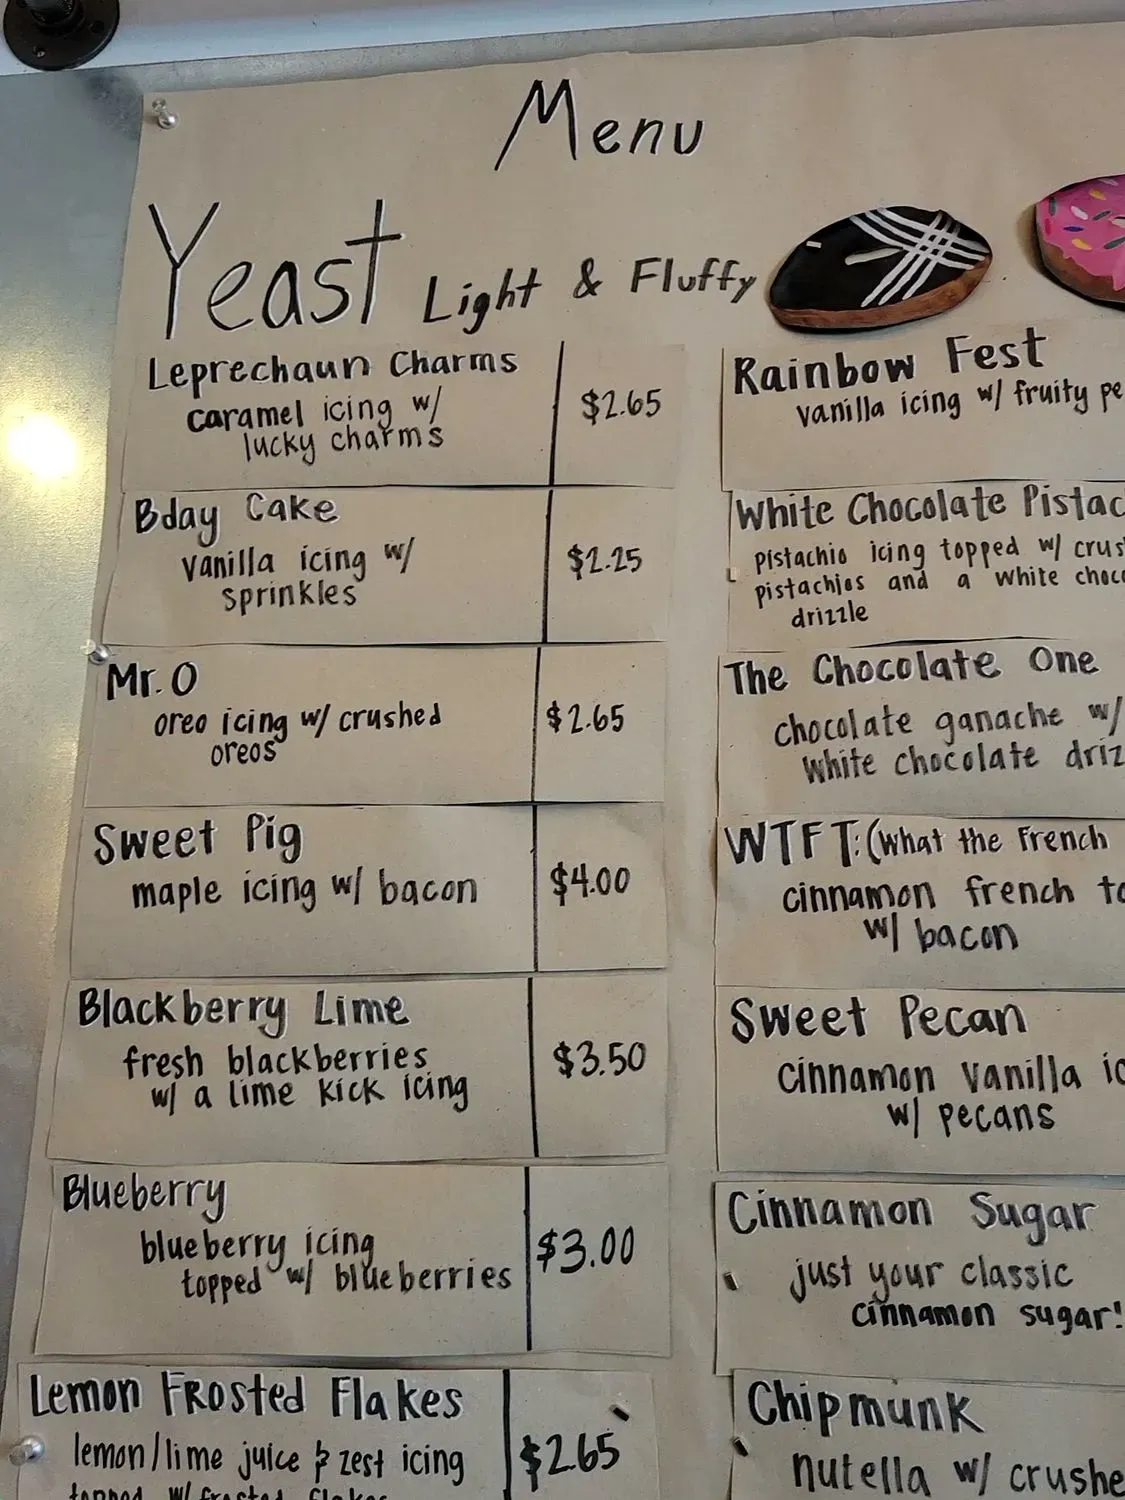 Menu
Yeast Light & Fluffy
Leprechaun Charms
caramel icing w/
lucky charms
$2.65
Bday Cake
vanilla icing w/
sprinkles
$2.25
Mr. O
oreo icing w/ crushed
oreos
$2.65
Sweet Pig
maple icing w/ bacon
$4.00
Blackberry Lime
fresh blackberries
w/ a lime kick icing
$3.50
Blueberry
blueberry icing
topped w/ blueberries
$3.00
Lemon Frosted Flakes
lemon/lime juice & zest icing
topped w/ frosted flakes
$2.65
Rainbow Fest
vanilla icing w/ fruity pe
White Chocolate Pistac
pistachio icing topped w/ crus
pistachios and a white choc
drizzle
The Chocolate One
chocolate ganache w/
white chocolate driz
WTFT: (What the French
cinnamon french to
w/ bacon
Sweet Pecan
cinnamon vanilla ic
w/ pecans
Cinnamon Sugar
just your classic
cinnamon sugar!
Chipmunk
nutella w/ crushe